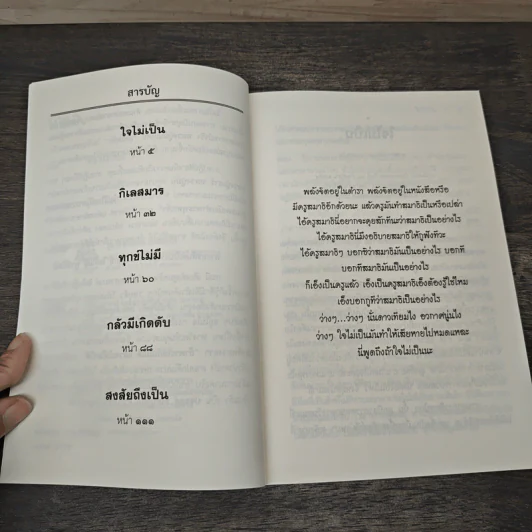 สารบัญ
ใจไม่เป็น
หน้า ๕
กิเลสมาร
หน้า ๓๒
ทุกข์ไม่มี
หน้า ๖๐
กลัวมีเกิดดับ
หน้า ๘๘
สงสัยถึงเป็น
หน้า ๑๑๑
พลังจิตอยู่ในตำรา พลังจิตอยู่ในหนังสือหรือ
มีครูสมาธิอีกด้วยนะ แล้วครูมันทำสมาธิเป็นหรือเปล่า
ไอ้ครูสมาธินี่อยากจะคุยสักทีนะว่าสมาธิเป็นอย่างไร
ไอ้ครูสมาธินี่มึงอธิบายสมาธิให้กูฟังทีวะ
ไอ้ครูสมาธิๆ บอกซิว่าสมาธิมันเป็นอย่างไร บอกที
บอกทีสมาธิมันเป็นอย่างไร
ก็เอ็งเป็นครูแล้ว เอ็งเป็นครูสมาธิเอ็งต้องรู้ใช่ไหม
เอ็งบอกกูทีว่าสมาธิเป็นอย่างไร
ว่างๆ...ว่างๆ นั่นดาวเทียมไง อวกาศนู่นไง
ว่างๆ ใจไม่เป็นมันทำให้เสียหายไปหมดแหละ
นี่พูดถึงถ้าใจไม่เป็นนะ